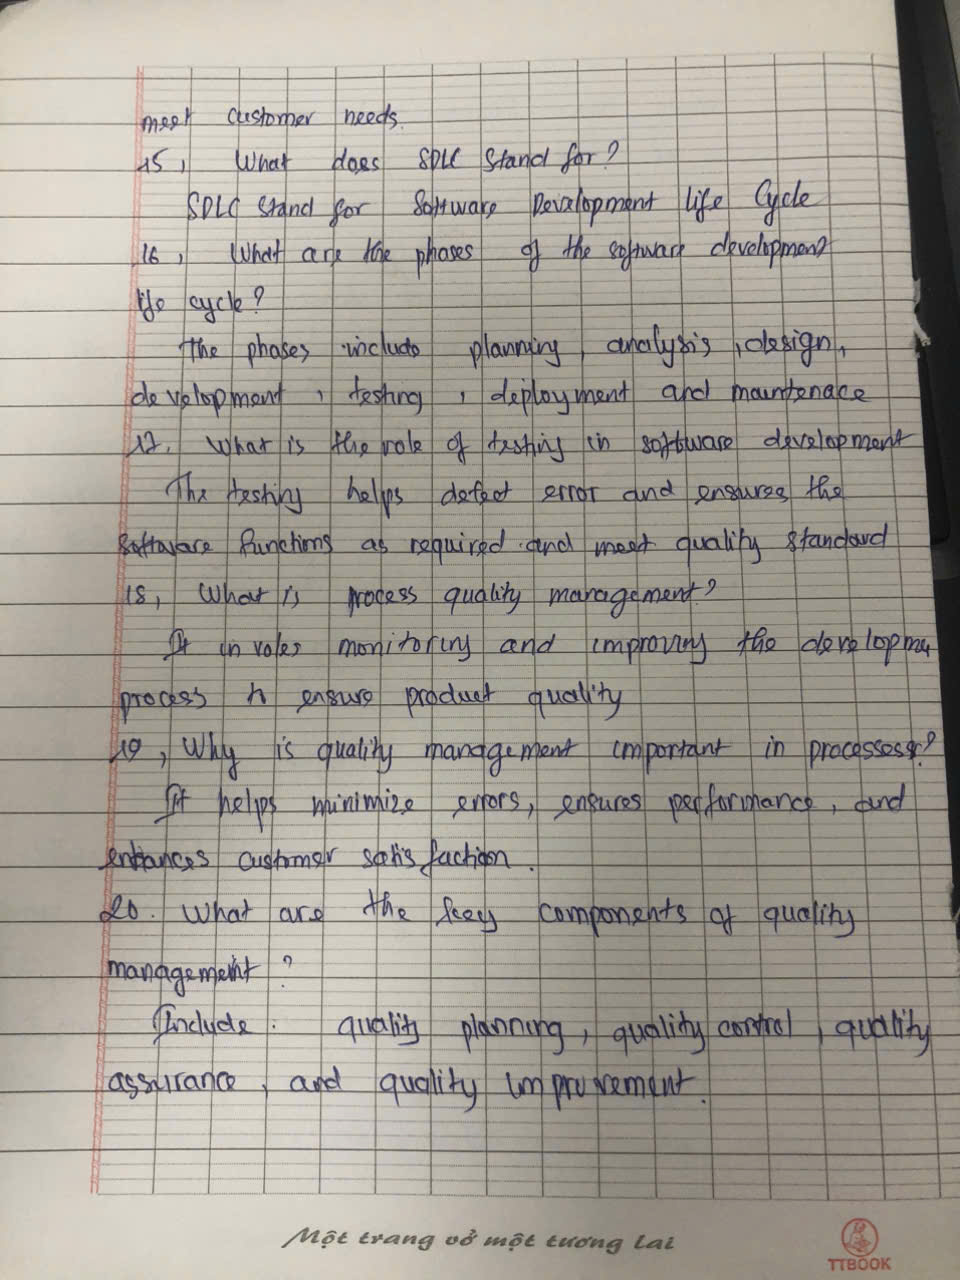 meet customer needs.
15, What does SDLC Stand for?
SDLC Stand for Software Development life Cycle
16, What are the phases of the software development
life cycle?
The phases include planning, analysis, design,
development, testing, deployment and maintenace
17. What is the role of testing in software development
The testing helps detect error and ensures the
software functions as required and meet quality standard
18, What is process quality management?
It involes monitoring and improving the developme
process to ensure product quality
19, Why is quality management important in processes?
It helps minimize errors, ensures performance, and
enhances customer satisfaction.
20. What are the key components of quality
management?
Include: quality planning, quality control, quality
assurance, and quality improvement.
Một trang vở một tương lai
TTBOOK